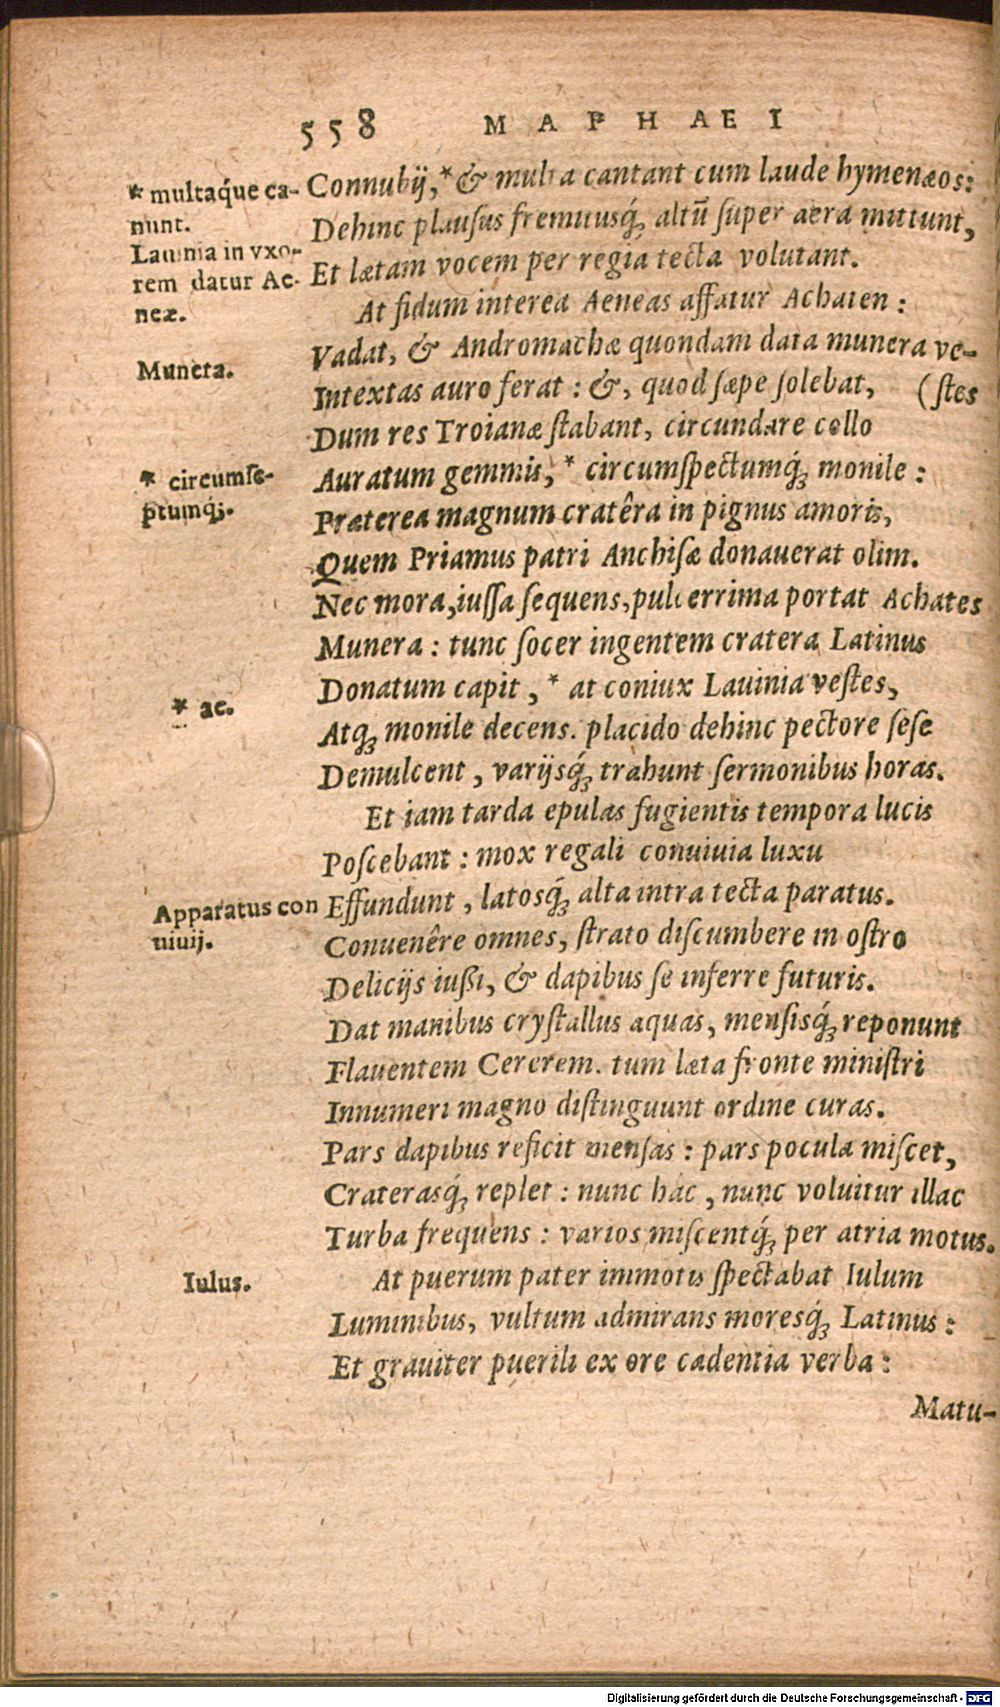 558 MAPHAEI
* multaq́ue ca-
nunt.
Lauinia in vxo-
rem datur Ae-
neæ.
Munera.
* circumse-
ptumq́;.
* ac.
Apparatus con
uiuij.
Iulus.
Connubij, * & multa cantant cum laude hymenæos:
Dehinc plausus fremitusq́; altũ super aera mittunt,
Et lætam vocem per regia tecta volutant.
At fidum interea Aeneas affatur Achaten:
Vadat, & Andromachæ quondam data munera ve-
Intextas auro ferat: &, quod sæpe solebat, (stes
Dum res Troianæ stabant, circundare collo
Auratum gemmis, * circumspectumq́; monile:
Præterea magnum cratêra in pignus amoris,
Quem Priamus patri Anchisæ donauerat olim.
Nec mora, iussa sequens, pulcerrima portat Achates
Munera: tunc socer ingentem cratera Latinus
Donatum capit, * at coniux Lauinia vestes,
Atq; monile decens. placido dehinc pectore sese
Demulcent, varijsq́; trahunt sermonibus horas.
Et iam tarda epulas fugientis tempora lucis
Poscebant: mox regali conuiuia luxu
Effundunt, latosq́; alta intra tecta paratus.
Conuenêre omnes, strato discumbere in ostro
Delicijs iussi, & dapibus se inferre futuris.
Dat manibus crystallus aquas, mensisq́; reponunt
Flauentem Cererem. tum læta fronte ministri
Innumeri magno distinguunt ordine curas.
Pars dapibus reficit mensas: pars pocula miscet,
Craterasq́; replet: nunc hác, nunc voluitur illac
Turba frequens: varios miscentq́; per atria motus.
At puerum pater immotis spectabat Iulum
Luminibus, vultum admirans moresq́; Latinus:
Et grauiter puerili ex ore cadentia verba:
Matu-
Digitalisierung gefördert durch die Deutsche Forschungsgemeinschaft - DFG